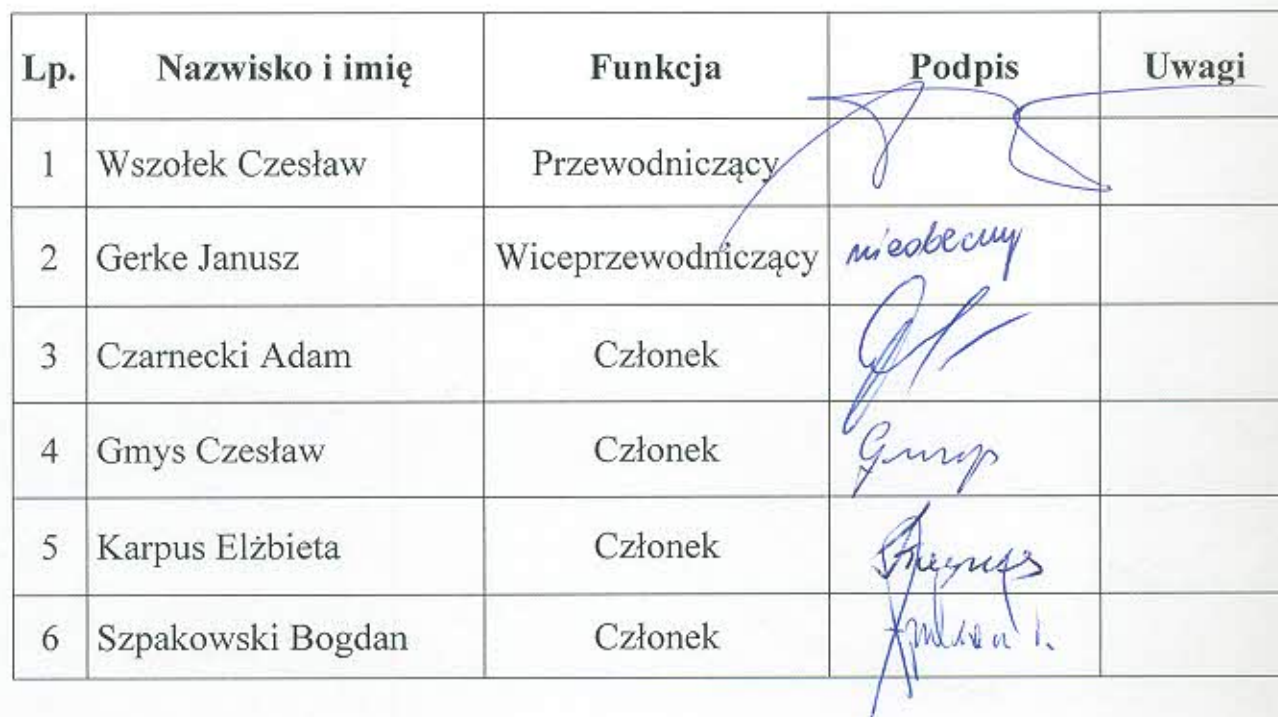 Lp. Nazwisko i imię Funkcja Podpis Uwagi
1 Wszołek Czesław Przewodniczący
2 Gerke Janusz Wiceprzewodniczący nieobecny
3 Czarnecki Adam Członek
4 Gmys Czesław Członek Gmys
5 Karpus Elżbieta Członek
6 Szpakowski Bogdan Członek